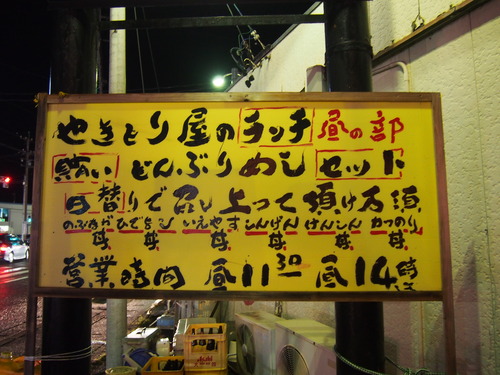 やきとり屋のランチ 昼の部
賄い どんぶりめし セット
日替りで召し上って頂け〼
のぶながひでよし いえやす しんげん けんしん かつのり
丼 丼 丼 丼 丼 丼
営業時間 昼11:30 昼14時
Asahi